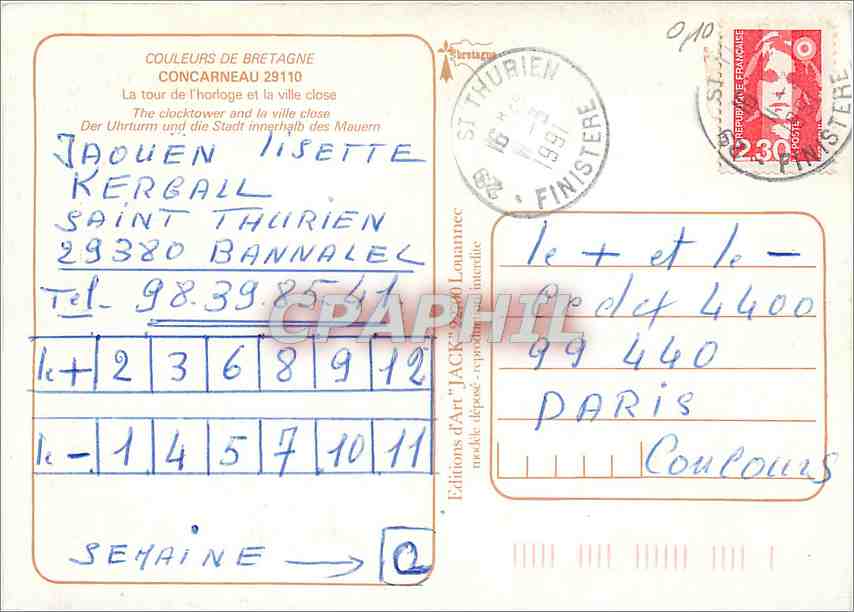 COULEURS DE BRETAGNE
CONCARNEAU 29110
La tour de l'horloge et la ville close
The clocktower and la ville close
Der Uhrturm und die Stadt innerhalb des Mauern
JAOUEN lISETTE
KERGALL
SAINT THURIEN
29380 BANNALEC
Tel - 98.39.85.41
le + 2 3 6 8 9 12
le - 1 4 5 7 10 11
SEMAINE → Q
bretagne
ST THURIEN
16 H
1991
29 • FINISTERE
Editions d'Art "JACK" Louannec
modèle déposé - reproduction interdite
CPAPHIL
0,10
REPUBLIQUE FRANÇAISE
2.30 POSTE
ST
29 • FINISTERE
le + et le -
Cedex 4400
99 440
PARIS
Concours